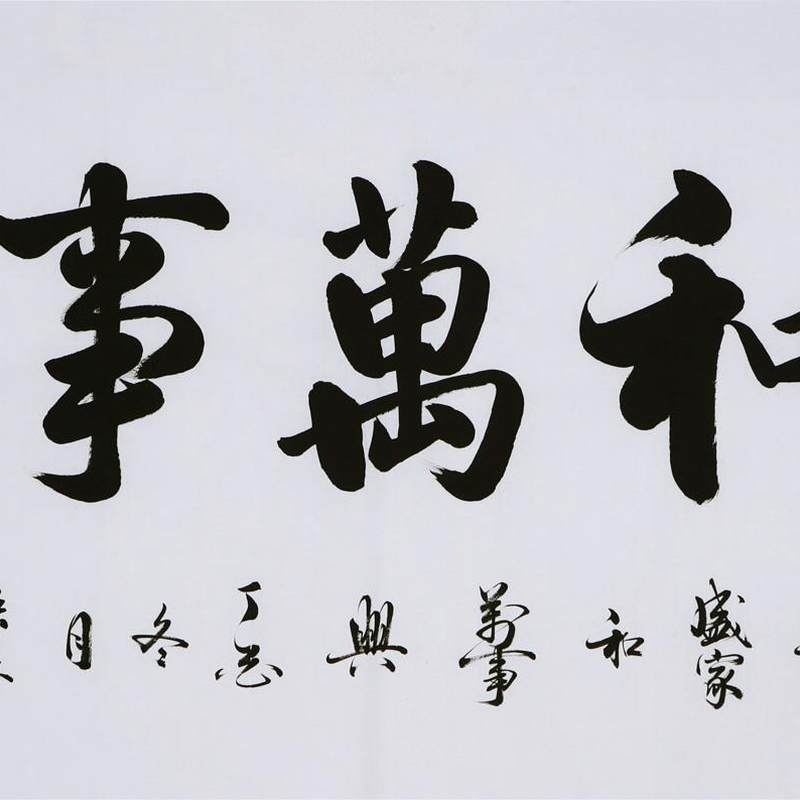 和萬事
盛家和萬事興丁酉冬月